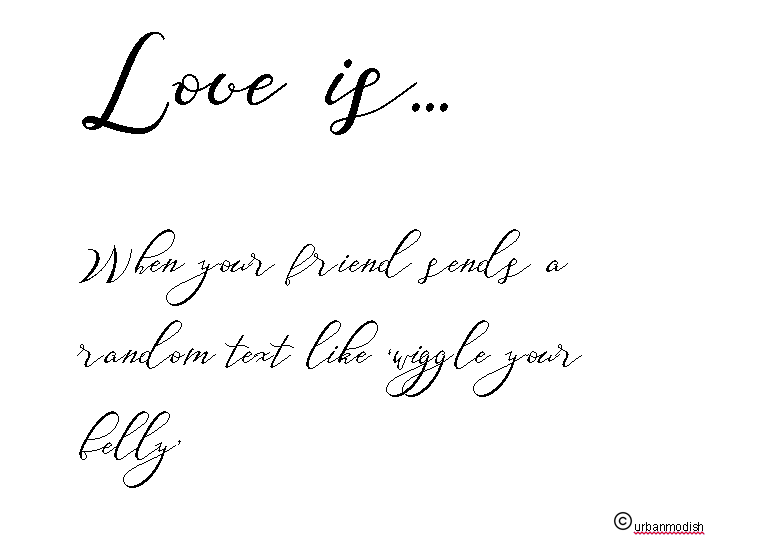 Love is...
When your friend sends a
random text like 'wiggle your
belly'
© urbanmodish